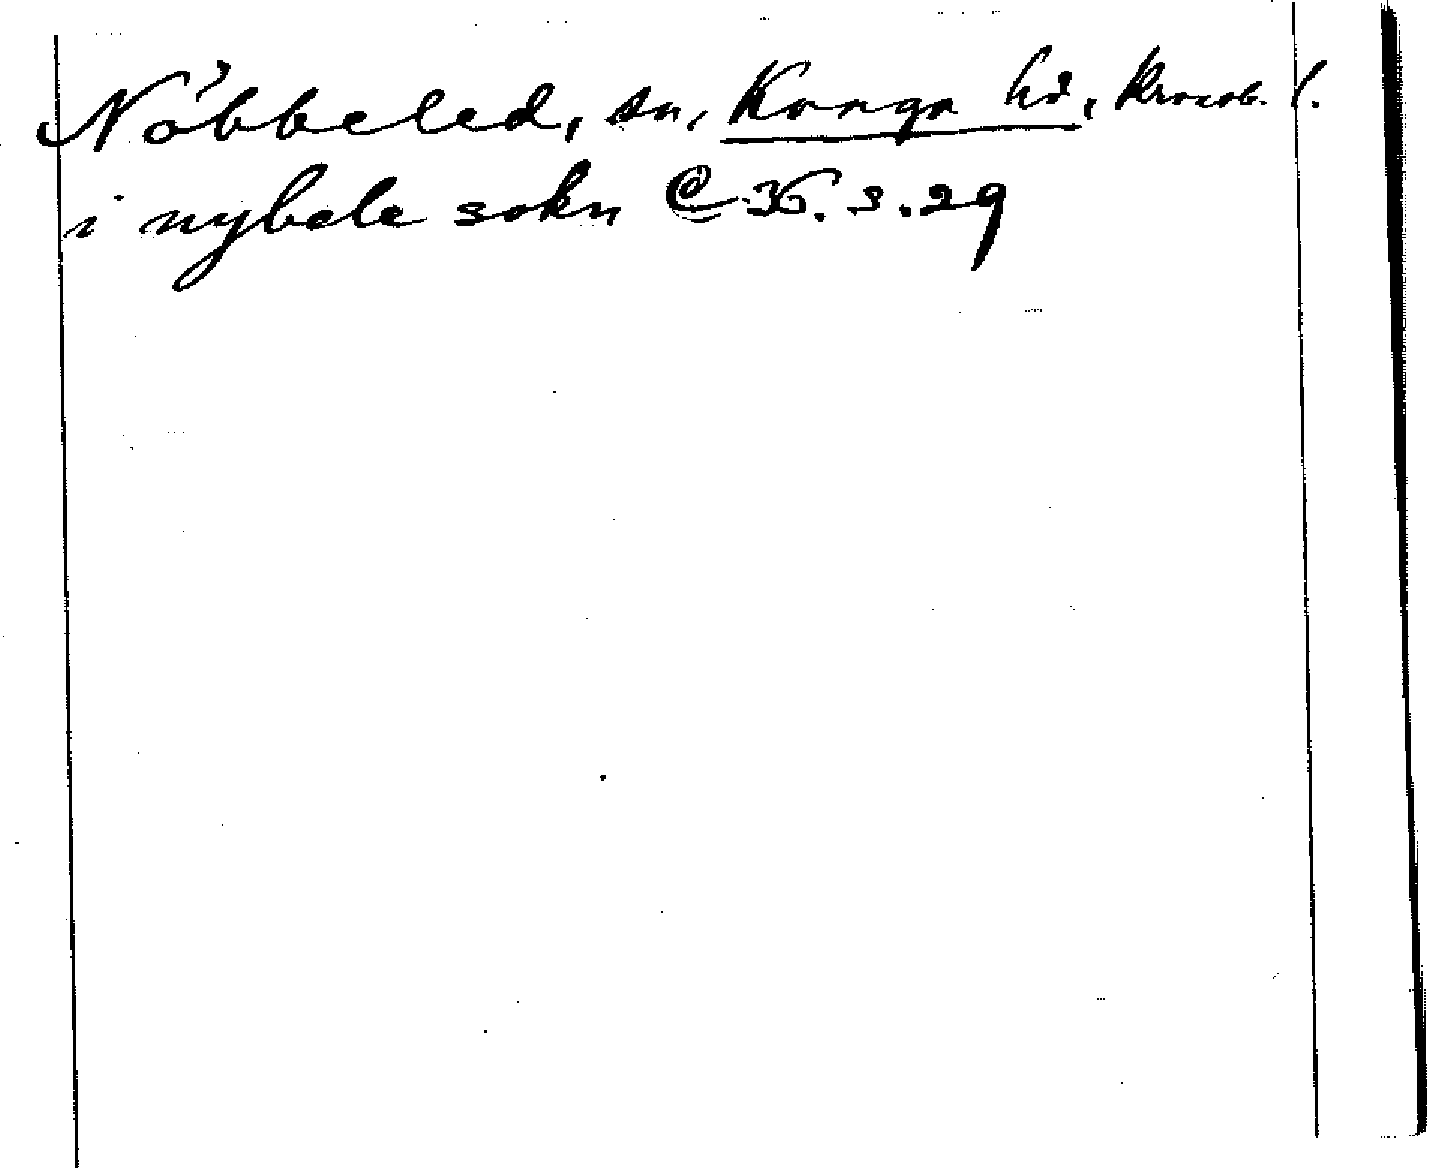 Nöbbeled, sn, Konga hd, Kronob. l.
i nybele sokn C 36. 3. 29